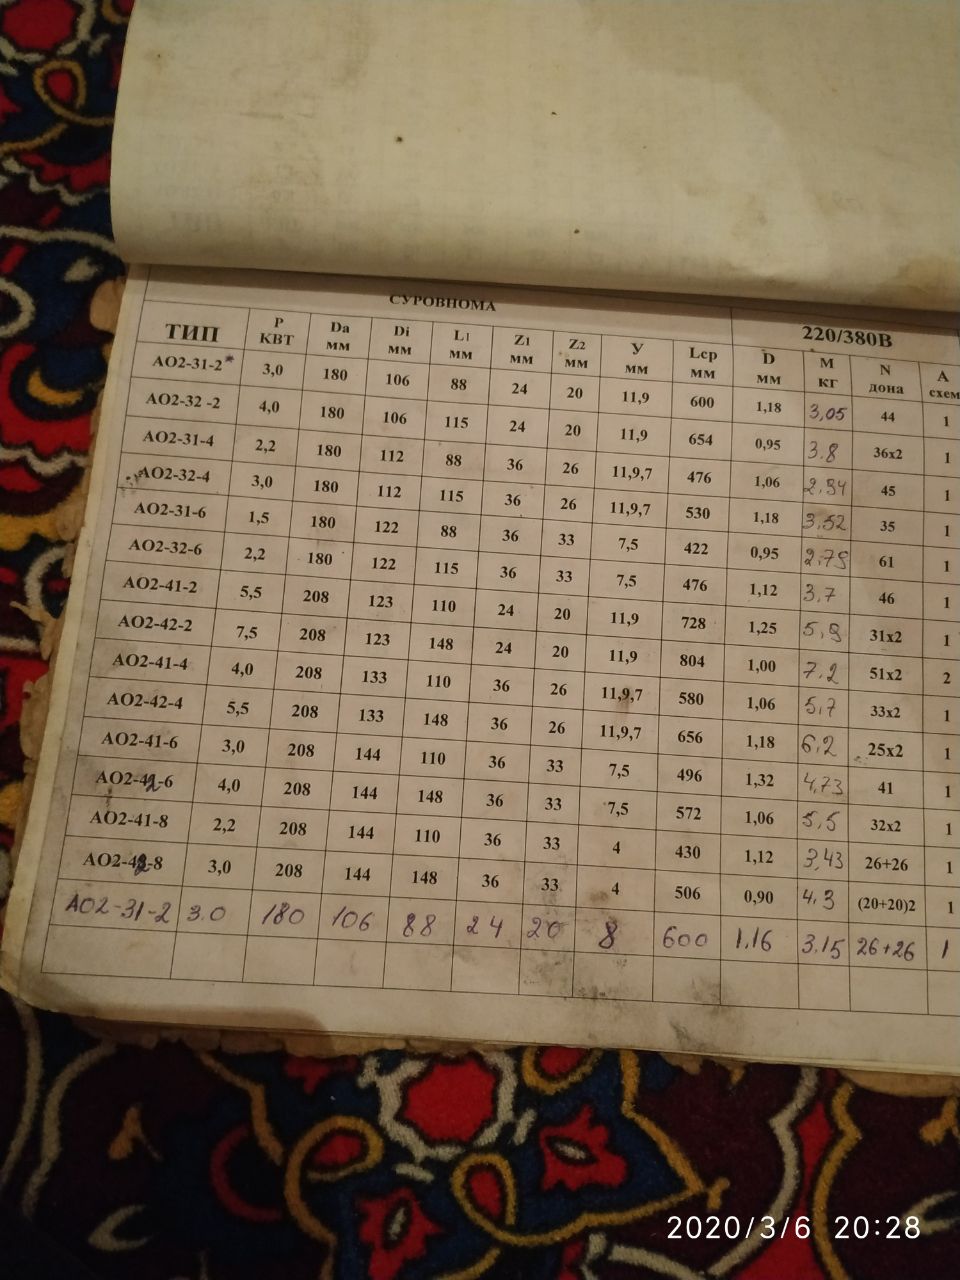 СУРОВНОМА 220/380В
ТИП Р КВТ Da мм Di мм L1 мм Z1 мм Z2 мм У мм Lcp мм D мм М кг N дона А схем
АО2-31-2* 3,0 180 106 88 24 20 11,9 600 1,18 3,05 44 1
АО2-32 -2 4,0 180 106 115 24 20 11,9 654 0,95 3.8 36х2 1
АО2-31-4 2,2 180 112 88 36 26 11,9,7 476 1,06 2,94 45 1
АО2-32-4 3,0 180 112 115 36 26 11,9,7 530 1,18 3,52 35 1
АО2-31-6 1,5 180 122 88 36 33 7,5 422 0,95 2,75 61 1
АО2-32-6 2,2 180 122 115 36 33 7,5 476 1,12 3,7 46 1
АО2-41-2 5,5 208 123 110 24 20 11,9 728 1,25 5,9 31х2 1
АО2-42-2 7,5 208 123 148 24 20 11,9 804 1,00 7,2 51х2 2
АО2-41-4 4,0 208 133 110 36 26 11,9,7 580 1,06 5,7 33х2 1
АО2-42-4 5,5 208 133 148 36 26 11,9,7 656 1,18 6,2 25х2 1
АО2-41-6 3,0 208 144 110 36 33 7,5 496 1,32 4,73 41 1
АО2-42-6 4,0 208 144 148 36 33 7,5 572 1,06 5,5 32х2 1
АО2-41-8 2,2 208 144 110 36 33 4 430 1,12 3,43 26+26 1
АО2-42-8 3,0 208 144 148 36 33 4 506 0,90 4,3 (20+20)2 1
АО2-31-2 3.0 180 106 88 24 20 8 600 1.16 3.15 26+26 1
2020/3/6 20:28